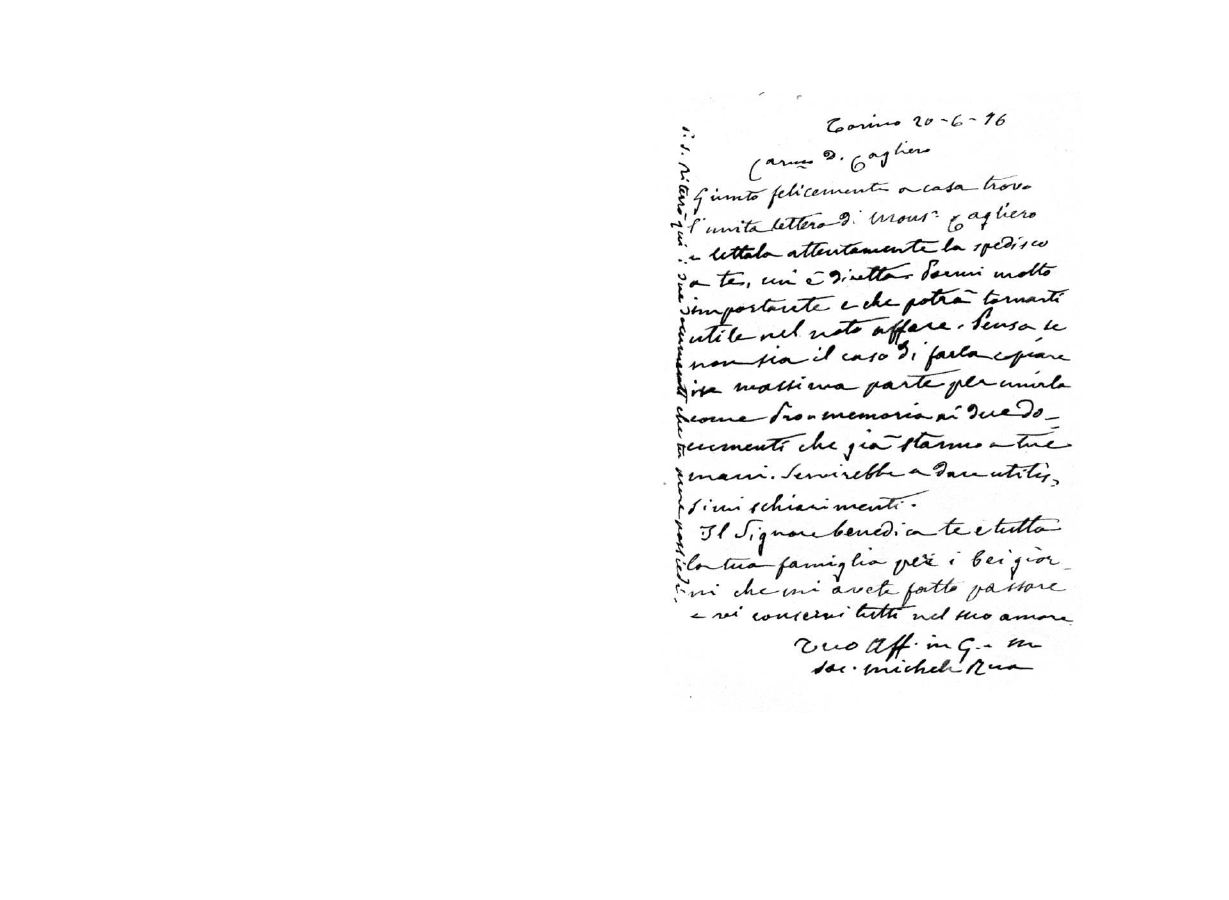 Torino 20-6-96
Car.mo D. Cagliero
Giunto felicemente a casa trovo
l'unita lettera di Mons.r Cagliero
e lettala attentamente la spedisco
a te, cui è diretta. Parmi molto
importante e che potrà tornarti
utile nel noto affare. Pensa se
non sia il caso di farla copiare
in massima parte per unirla
come Pro-memoria ai due do-
cumenti che già stanno a tue
mani. Servirebbe a dare utilis,
simi schiarimenti.
Il Signore benedica te e tutta
la tua famiglia per i bei gior-
ni che mi avete fatto passare
e vi conservi tutti nel suo amore
Tuo Aff. in G. e M
Sac. Michele Rua
P.S. Riterrò qui i due documenti che tu pure possiedi.